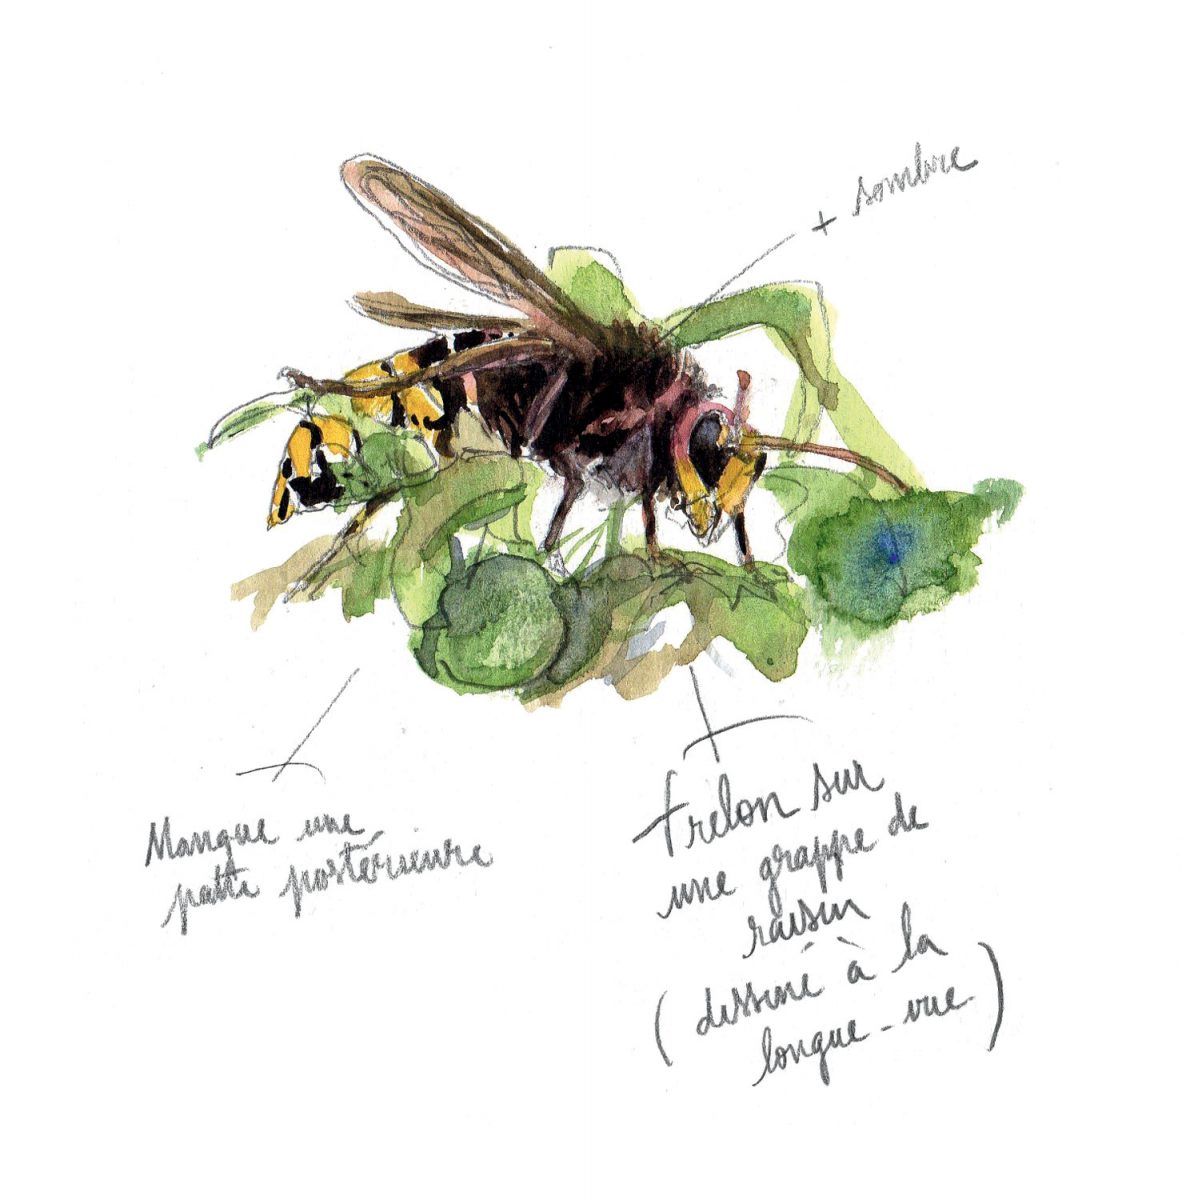 + sombre
Manque une
patte postérieure
Frelon sur
une grappe de
raisin
(dessiné à la
longue-vue)